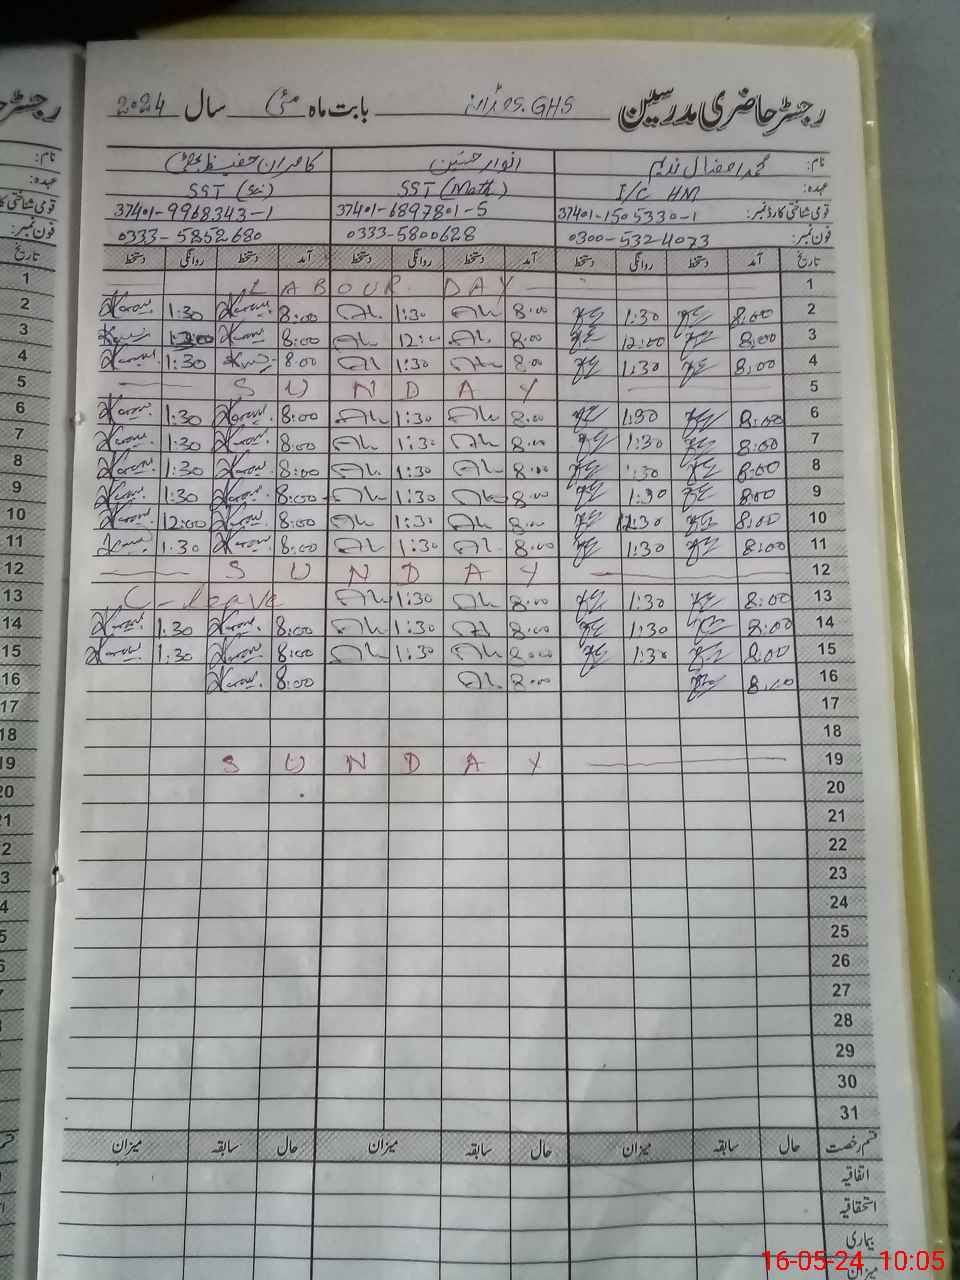 رجسٹر حاضری مدرسین GHS بابت ماہ مئی سال 2024
نام: محمد افضال ندیم انوار حسین کامران حفیظ بھٹی
عہدہ: I/C HM SST (Math) SST (Sci)
قومی شناختی کارڈ نمبر: 37401-1505330-1 37401-6897801-5 37401-9968343-1
فون نمبر: 0300-5324073 0333-5800628 0333-5852680
تاریخ آمد دستخط روانگی دستخط آمد دستخط روانگی دستخط آمد دستخط روانگی دستخط
1 LABOUR DAY
2 8:00 1:30 8:00 1:30 8:00 1:30
3 8:00 12:00 8:00 12:00 8:00
4 8:00 1:30 8:00 1:30 8:00 1:30
5 SUNDAY
6 8:00 1:30 8:00 1:30 8:00 1:30
7 8:00 1:30 8:00 1:30 8:00 1:30
8 8:00 1:30 8:00 1:30 8:00 1:30
9 8:00 1:30 8:00 1:30 8:00 1:30
10 8:00 8:00 1:30 8:00 12:00
11 8:00 1:30 8:00 1:30 8:00 1:30
12 SUNDAY
13 8:00 1:30 8:00 1:30 C-leave
14 8:00 1:30 8:00 1:30 8:00 1:30
15 8:00 1:30 8:00 1:30 8:00 1:30
16 8:00 8:00 8:00
17
18
19 SUNDAY
20
21
22
23
24
25
26
27
28
29
30
31
قسم رخصت حال سابقہ میزان حال سابقہ میزان حال سابقہ میزان
اتفاقیہ
استحقاقیہ
بیماری
میزان
16-05-24 10:05